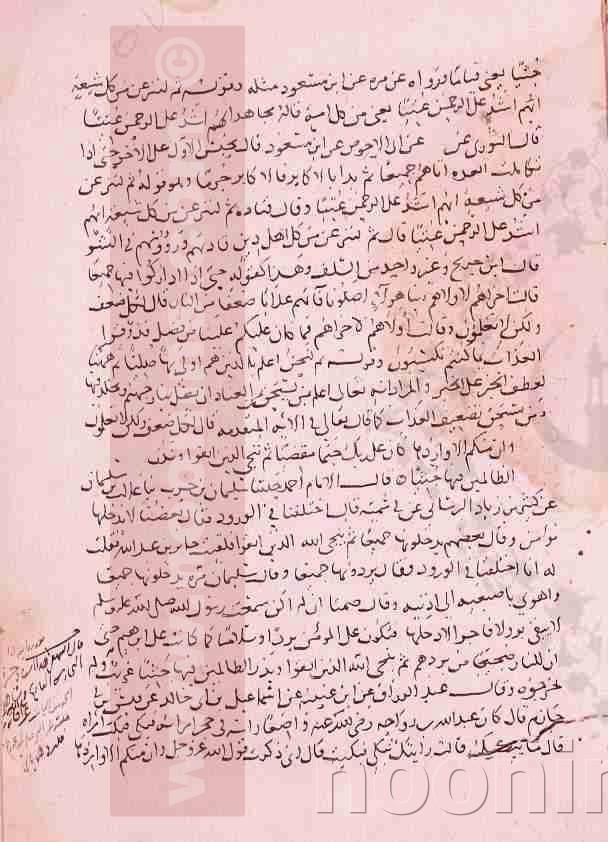 جثيا يعني قياما وروي اه عن مره عن ابن مسعود مثله وقوله ثم لننزعن من كل شيعة
ايهم اشد على الرحمن عتيا يعني من كل امة قاله مجاهد ايهم اشد على الرحمن عتيا
قال الثوري عن عن ابي الاحوص عن ابن مسعود قال يحبس الاول على الاخر حتى اذا
تكاملت العدة اتاهم جميعا ثم بدا بالاكابر فالاكابر جرما وهو قوله ثم لننزعن
من كل شيعة ايهم اشد على الرحمن عتيا وقال قتاده ثم لننزعن من كل شيعة ايهم
اشد على الرحمن عتيا قال ثم لننزعن من كل اهل دين قادتهم ورووسهم في الشر
قال ابن جريج وغير واحد من السلف وهذا كقوله حتى اذا اداركوا فيها جميعا
قالت اخراهم لاولاهم ربنا هولا اضلونا فاتهم عذابا ضعفا من النار قال لكل ضعف
ولكن لا تعلمون وقالت اولاهم لاخراهم فما كان لكم علينا من فضل فذوقوا
العذاب بما كنتم تكسبون وقوله ثم لنحن اعلم بالذين هم اولى بها صليا ثم ههنا
لعطف الخبر على الخبر والمراد انه تعالى اعلم بمن يستحق من العباد ان يصلى بنار جهنم ويخلد فيها
وبمن يستحق تضعيف العذاب كما قال تعالى في الاية المتقدمة قال لكل ضعف ولكن لا تعلمون
وان منكم الا واردها كان على ربك حتما مقضيا ثم ننجي الذين اتقوا ونذر
الظالمين فيها جثيا قال الامام احمد حدثنا سليمان بن حرب ثنا غالب بن سليمان
عن كثير بن زياد البرساني عن ابي سمية قال اختلفنا في الورود فقال بعضنا لا يدخلها
مومن وقال بعضهم يدخلونها جميعا ثم ينجي الله الذين اتقوا فلقيت جابر بن عبد الله فقلت
له انا اختلفنا في الورود فقال يردونها جميعا وقال سليمان مره يدخلونها جميعا
واهوى باصبعيه الى اذنيه وقال صمتا ان لم اكن سمعت رسول الله صلى الله عليه وسلم
لا يبقى بر ولا فاجر الا دخلها فتكون على المومن بردا وسلاما كما كانت على ابراهيم حتى
ان للنار ضجيجا من بردهم ثم ينجي الله الذين اتقوا ويذر الظالمين فيها جثيا غريب ولم
يخرجوه وقال عبد الرزاق عن ابن عيينة عن اسماعيل بن ابي خالد عن قيس بن ابي
حازم قال كان عبد الله بن رواحه رضي الله عنه واضعا راسه في حجر امراته فبكى فبكت امراته
قال ما يبكيك قالت رايتك تبكي فبكيت قال اني ذكرت قول الله عز وجل وان منكم الا واردها